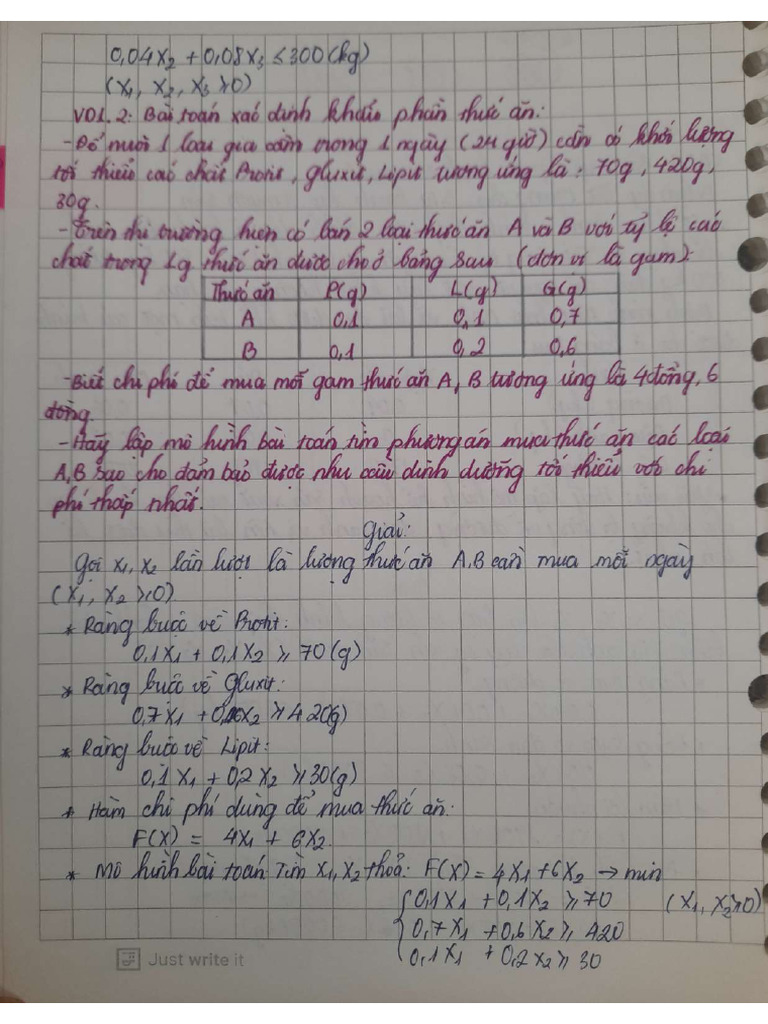 0,04x₂ + 0,08x₃ ≤ 300 (kg)
(x₁, x₂, x₃ ≥ 0)
VD1.2: Bài toán xác định khẩu phần thức ăn:
- Để nuôi 1 loại gia cầm trong 1 ngày (24 giờ) cần có khối lượng
tối thiểu các chất Protit, gluxit, Lipit tương ứng là: 70g, 420g,
30g.
- Trên thị trường hiện có bán 2 loại thức ăn A và B với tỷ lệ các
chất trong 1g thức ăn được cho ở bảng sau (đơn vị là gam):
Thức ăn P(g) L(g) G(g)
A 0,1 0,1 0,7
B 0,1 0,2 0,6
- Biết chi phí để mua mỗi gam thức ăn A, B tương ứng là 4 đồng, 6
đồng.
- Hãy lập mô hình bài toán tìm phương án mua thức ăn các loại
A, B sao cho đảm bảo được nhu cầu dinh dưỡng tối thiểu với chi
phí thấp nhất.
Giải:
Gọi x₁, x₂ lần lượt là lượng thức ăn A, B cần mua mỗi ngày
(x₁, x₂ ≥ 0)
* Ràng buộc về Protit:
0,1x₁ + 0,1x₂ ≥ 70 (g)
* Ràng buộc về Gluxit:
0,7x₁ + 0,6x₂ ≥ 420(g)
* Ràng buộc về Lipit:
0,1x₁ + 0,2x₂ ≥ 30(g)
* Hàm chi phí dùng để mua thức ăn:
F(x) = 4x₁ + 6x₂
* Mô hình bài toán Tìm x₁, x₂ thoả: F(x) = 4x₁ + 6x₂ → min
0,1x₁ + 0,1x₂ ≥ 70 (x₁, x₂ ≥ 0)
0,7x₁ + 0,6x₂ ≥ 420
0,1x₁ + 0,2x₂ ≥ 30
Just write it